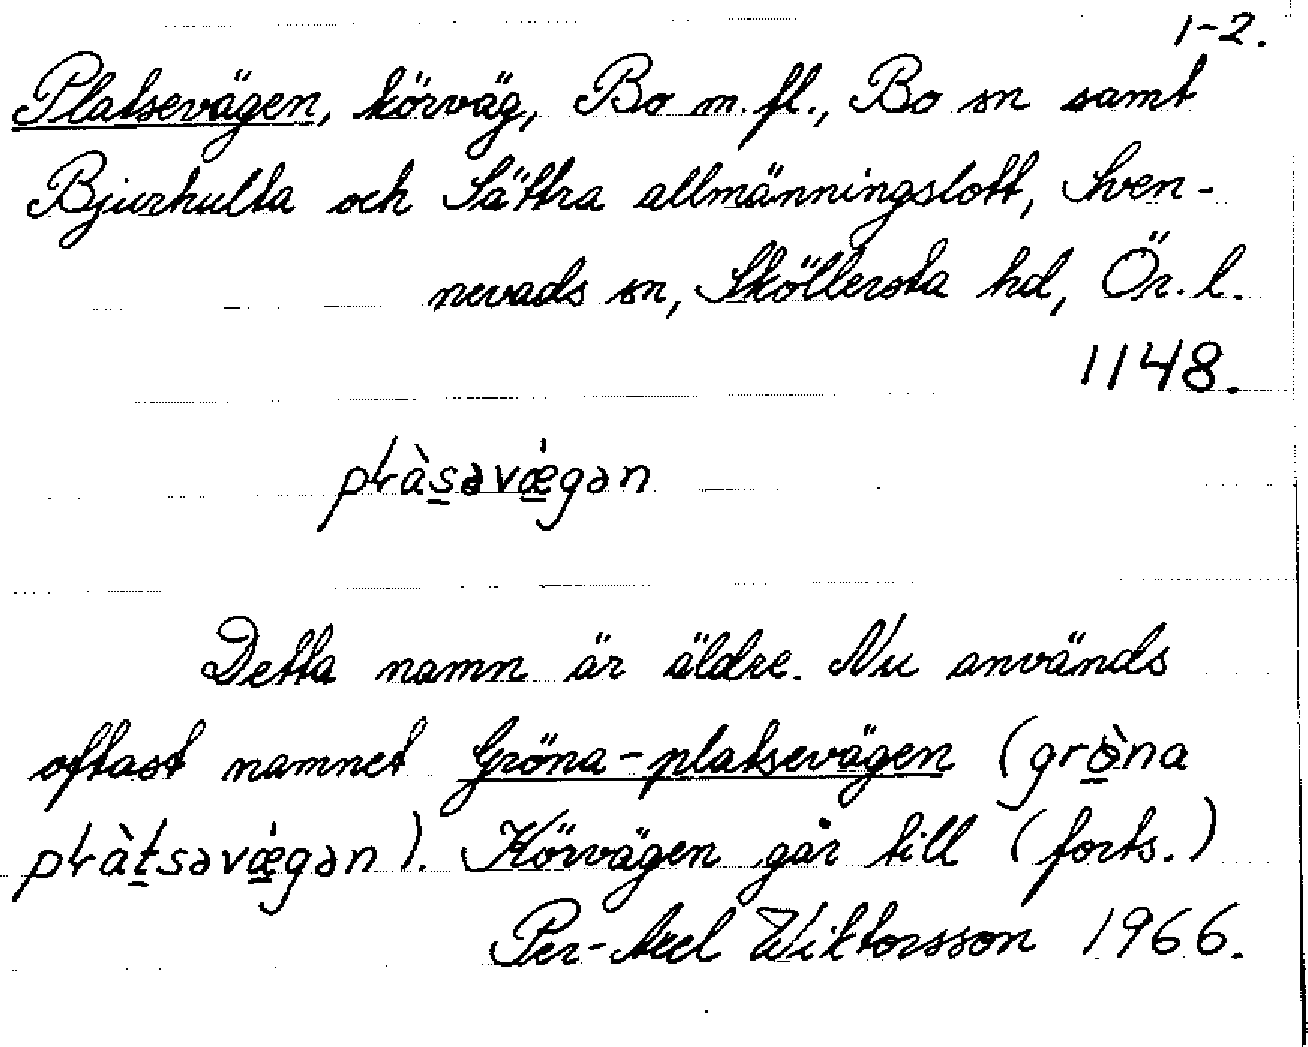 1-2.
Platsevägen, körväg, Bo m. fl., Bo sn samt
Bjurhulta och Sättra allmänningslott, Sven-
nevads sn, Sköllersta hd, Ör. l.
1148.
pɫàs̲əvæ̲̍gən
Detta namn är äldre. Nu används
oftast namnet Gröna-platsevägen (grö̲̀na
pɫàt̲səvæ̲̍gən). Körvägen går till (forts.)
Per-Axel Wiktorsson 1966.